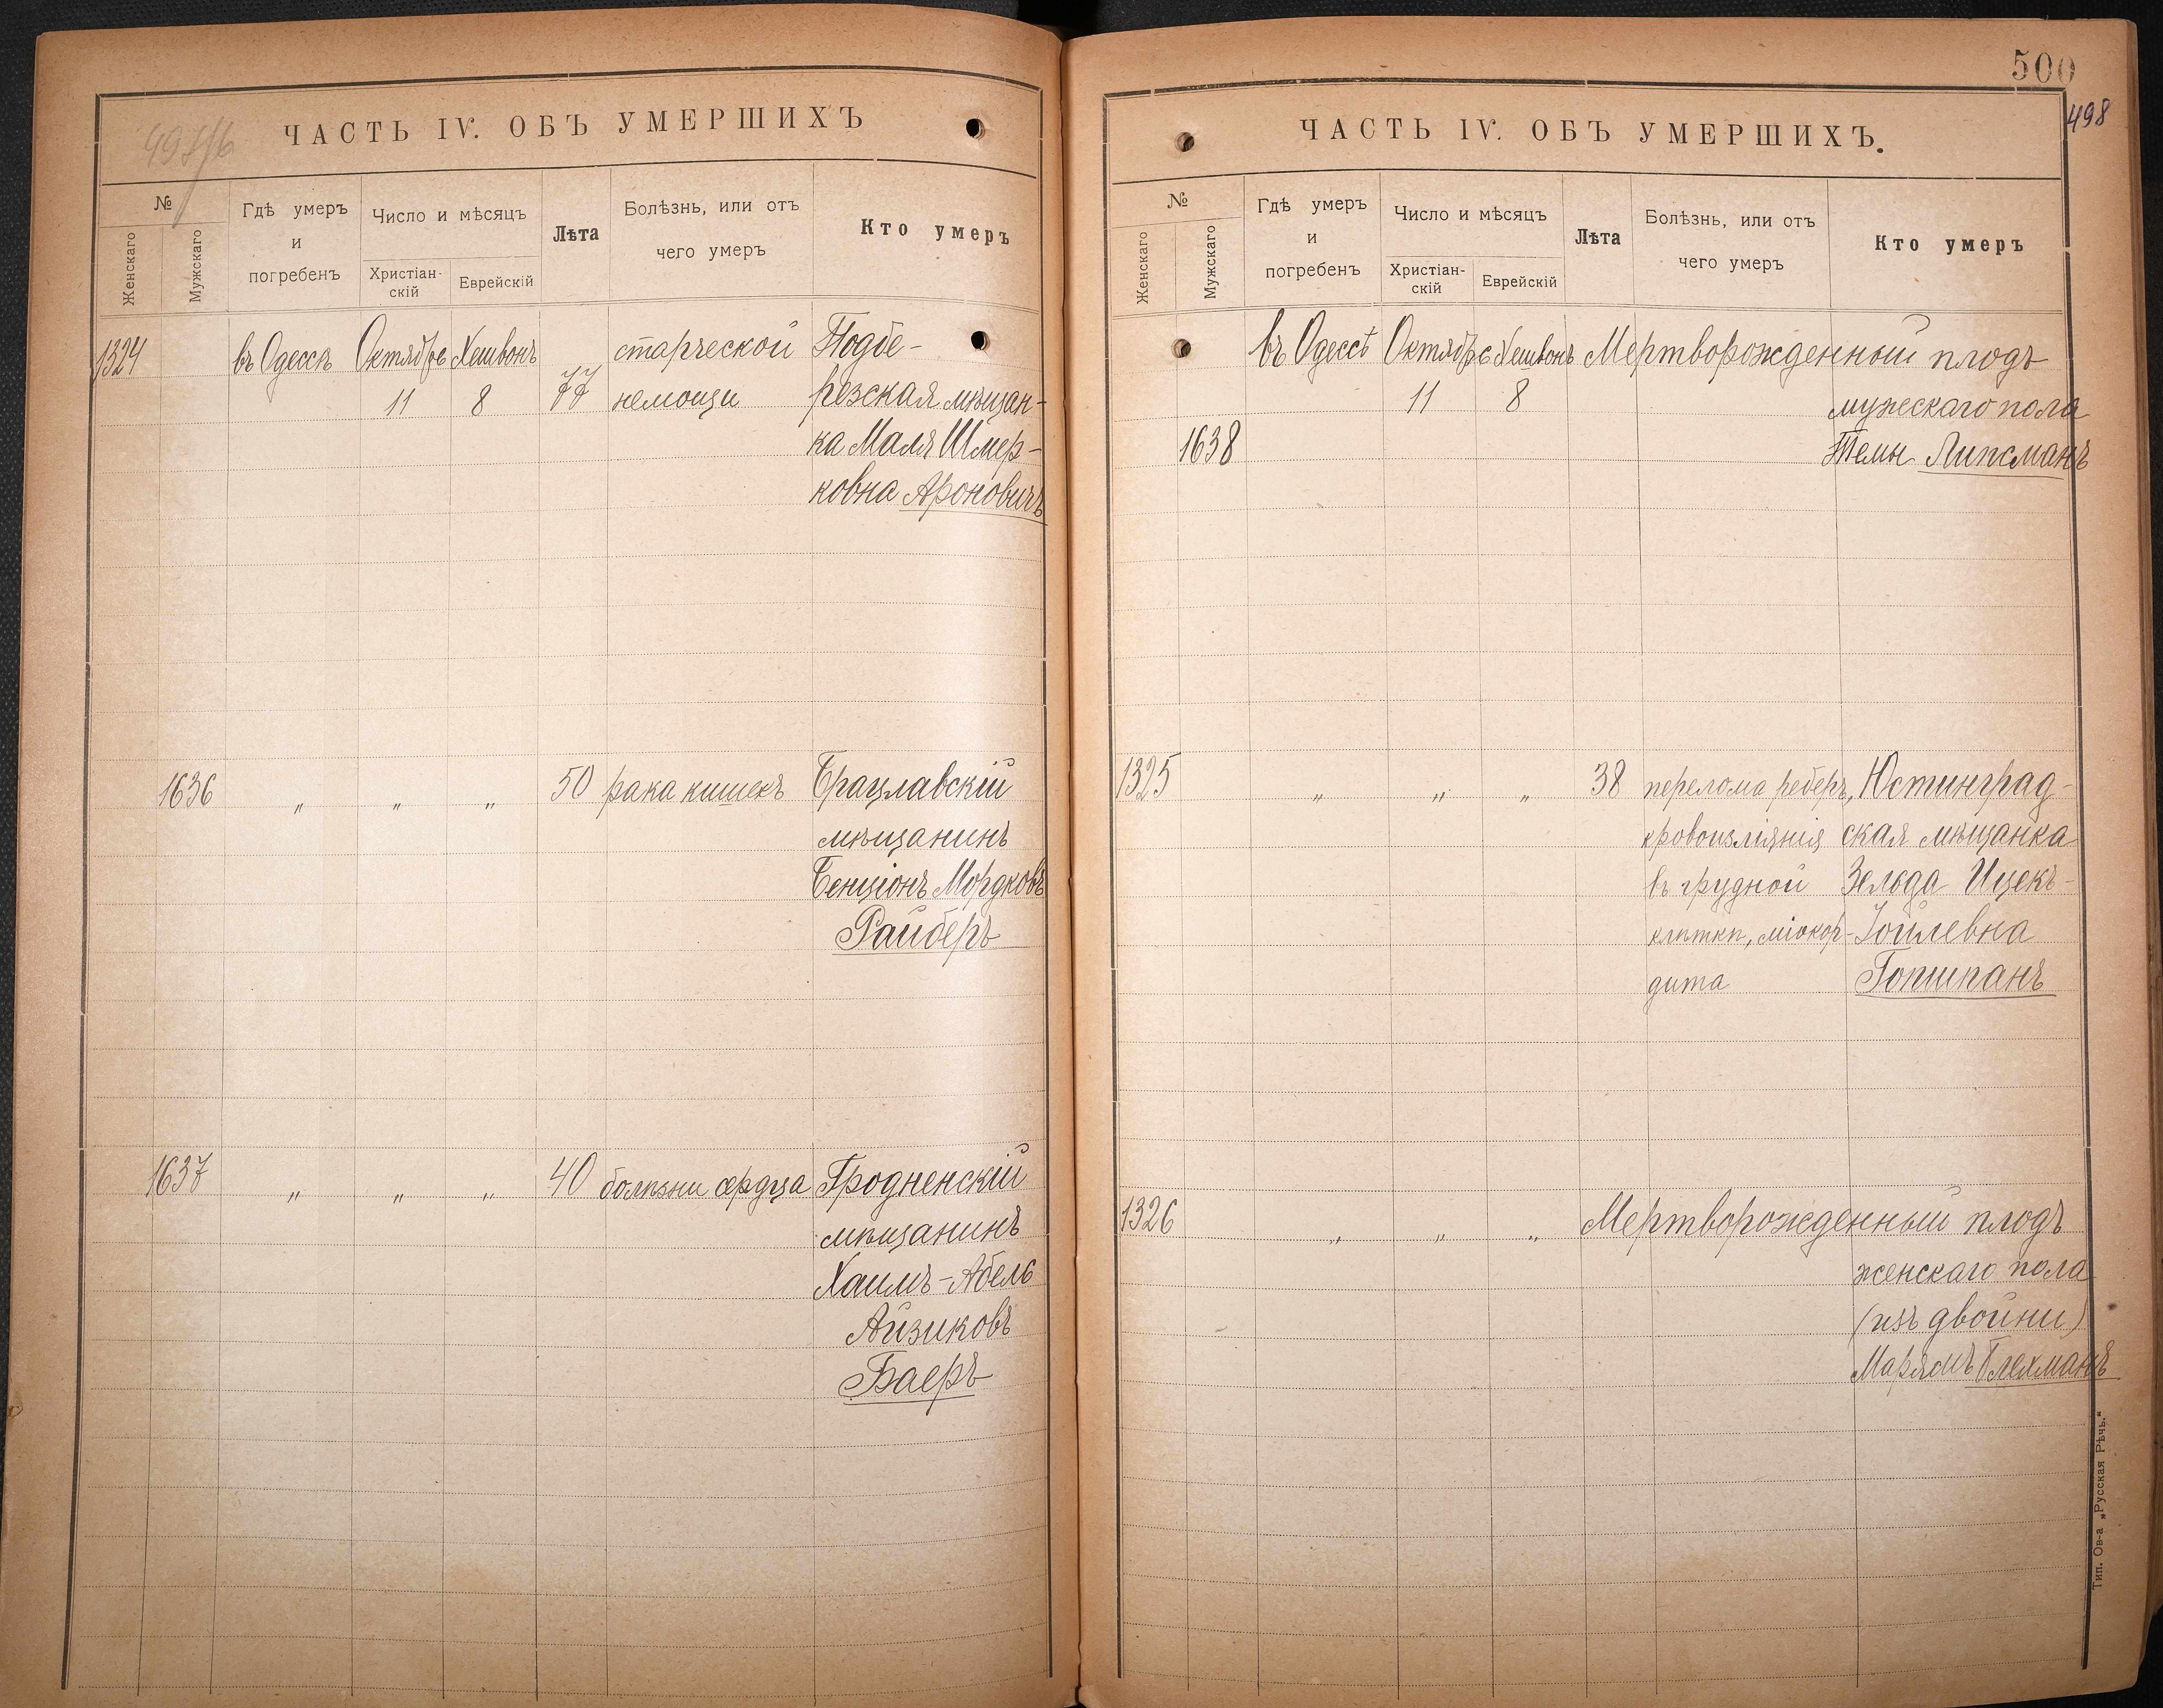 ЧАСТЬ IV. ОБЪ УМЕРШИХЪ
№
Женскаго
Мужскаго
Гдѣ умеръ
и
погребенъ
Число и мѣсяцъ
Христіан-
скій
Еврейскій
Лѣта
Болѣзнь, или отъ
чего умеръ
Кто умеръ
1324 въ Одессѣ Октября Хешвонъ старческой Подбе-
11 8 77 немощи резская мѣщан-
ка Маля Шмер-
ковна Ароновичъ
1636 " " " 50 рака кишекъ Брацлавскій
мѣщанинъ
Бенціонъ Мордковъ
Райберъ
1637 " " " 40 болѣзни сердца Гродненскій
мѣщанинъ
Хаимъ-Абель
Айзиковъ
Баеръ
500
498
ЧАСТЬ IV. ОБЪ УМЕРШИХЪ.
№
Женскаго
Мужскаго
Гдѣ умеръ
и
погребенъ
Число и мѣсяцъ
Христіан-
скій
Еврейскій
Лѣта
Болѣзнь, или отъ
чего умеръ
Кто умеръ
въ Одессѣ Октября Хешвонъ Мертворожденный плодъ
11 8 мужескаго пола
1638 Темы Липсманъ
1325 " " " 38 перелома реберъ, Юстинград-
кровоизліянія ская мѣщанка
въ грудной Зельда Ицекъ-
клѣтки, міокор- Іойлевна
дита Гопшпанъ
1326 " " " Мертворожденный плодъ
женскаго пола
(изъ двойни)
Марьямъ Блехманъ
Тип. Ов-а „Русская Рѣчь."